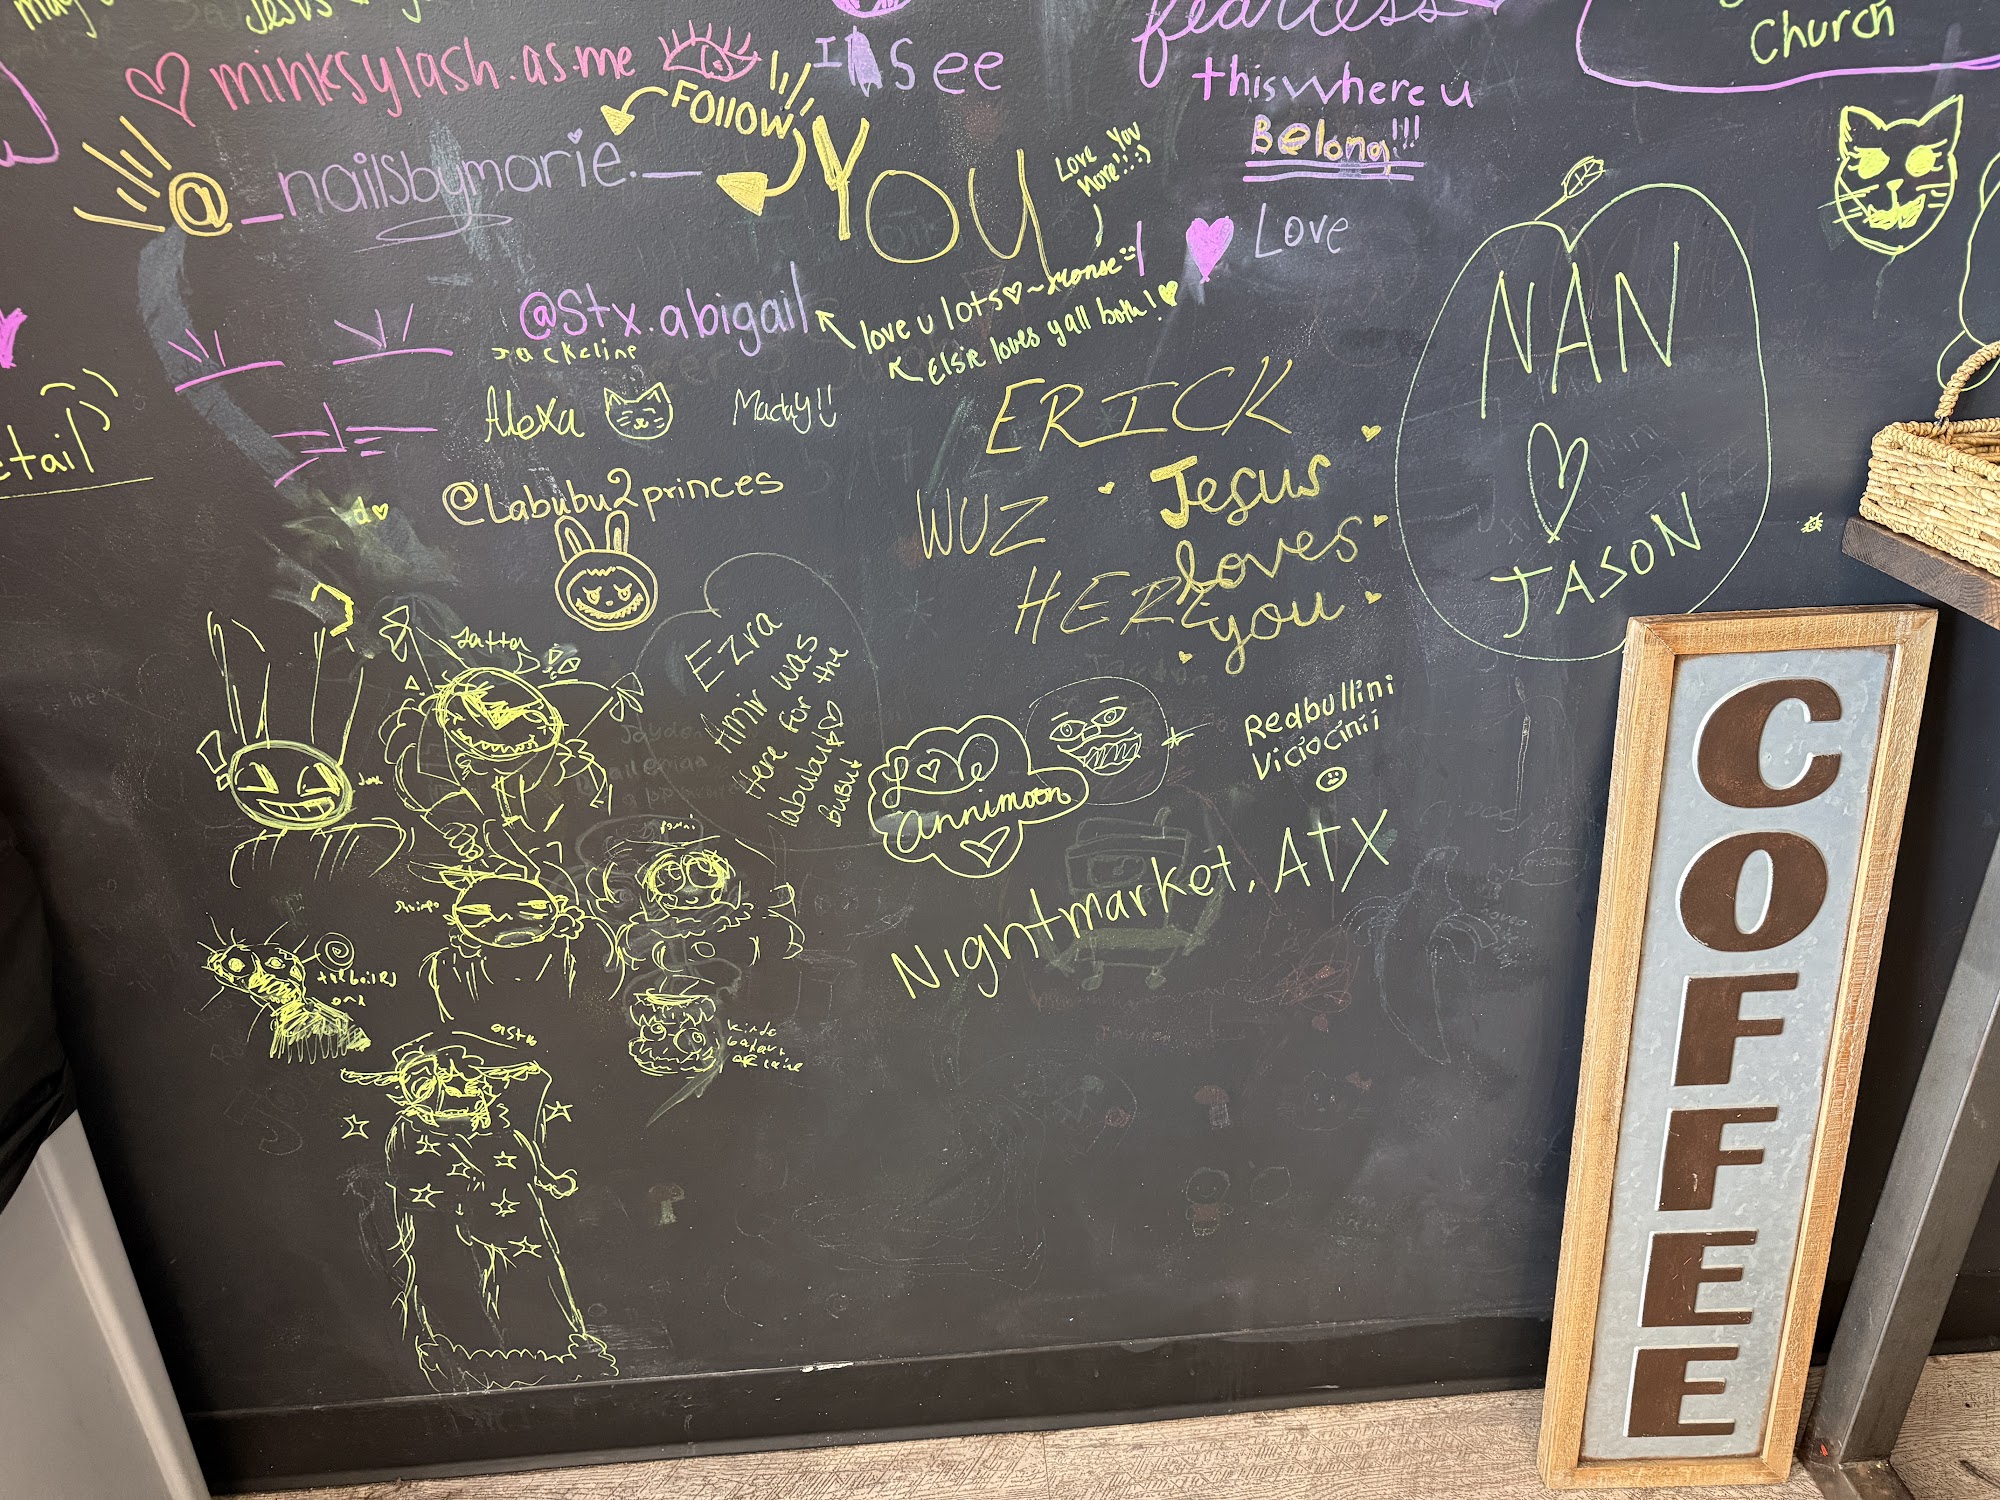 Jesus
Church
fearless
minksylash.as.me
I See
this where u
Belong!!!
Follow
@_nailsbymarie._
YOU
Love You
More!! :)
Love
@Stx.abigail
love u lots ~
Elsie loves y'all both!
Jackeline
Alexa
NAN
JASON
ERICK
WUZ
HERE
Jesus
loves
you
etail
@Labubu2princes
Ezra
Amir was
Here for the
labubu
Bubu
Love
annimoon
Redbullini
Viciocinii
Nightmarket.ATX
Jax
shrimpo
pomni
astro
COFFEE